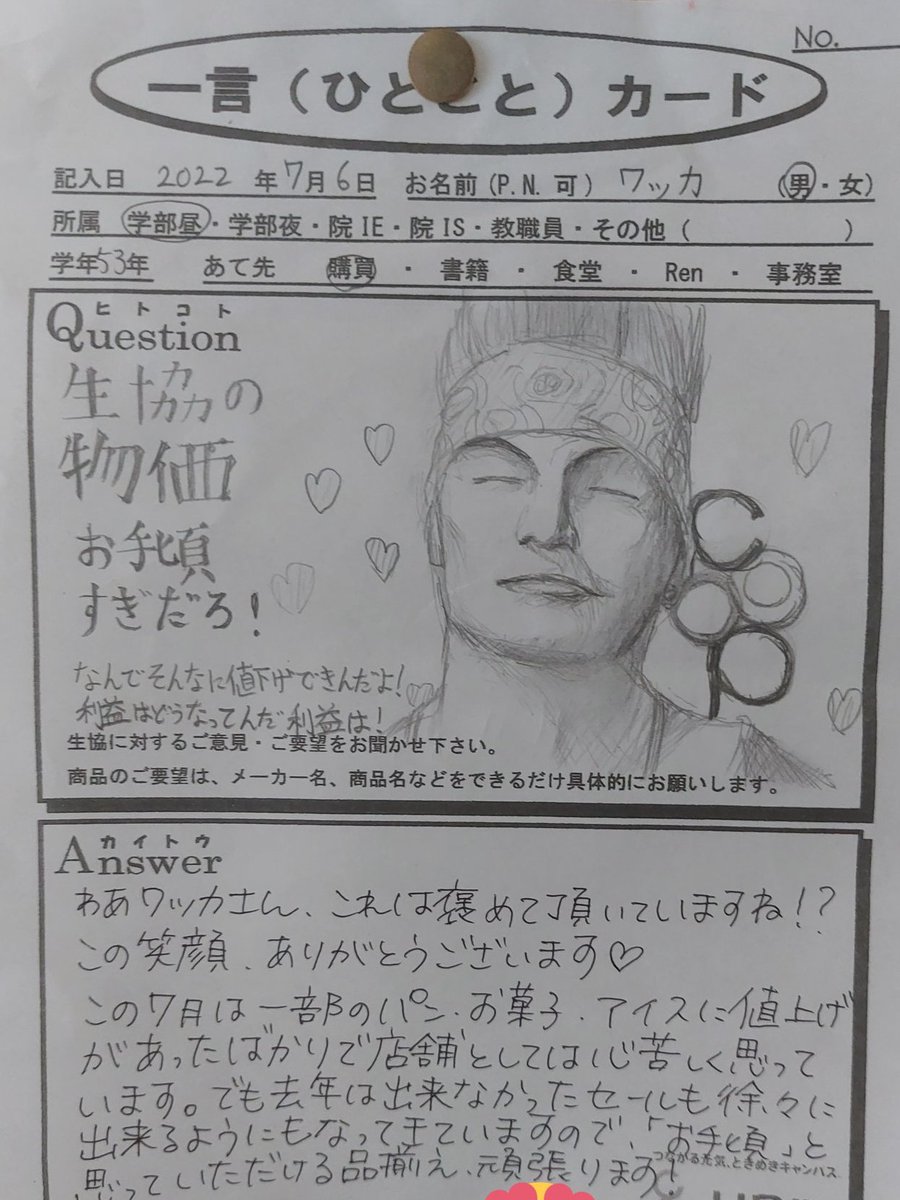 No.
一言（ひとこと）カード
記入日 2022 年 7月 6日 お名前 (P.N. 可) ワッカ (男・女)
所属 学部昼・学部夜・院 IE・院 IS・教職員・その他 ( )
学年53年 あて先 購買 ・ 書籍 ・ 食堂 ・ Ren ・ 事務室
ヒトコト
Question
生協の
物価
お手頃
すぎだろ!
なんでそんなに値下げできんだよ!
利益はどうなってんだ利益は!
coop
生協に対するご意見・ご要望をお聞かせ下さい。
商品のご要望は、メーカー名、商品名などをできるだけ具体的にお願いします。
カイトウ
Answer
わあワッカさん、これは褒めて頂いていますね!?
この笑顔、ありがとうございます♡
この7月は一部のパン、お菓子、アイスに値上げ
があったばかりで店舗としては心苦しく思って
います。でも去年は出来なかったセールも徐々に
出来るようにもなってきていますので、「お手頃」と
思っていただける品揃え、頑張ります!
つながる元気、ときめきキャンパス